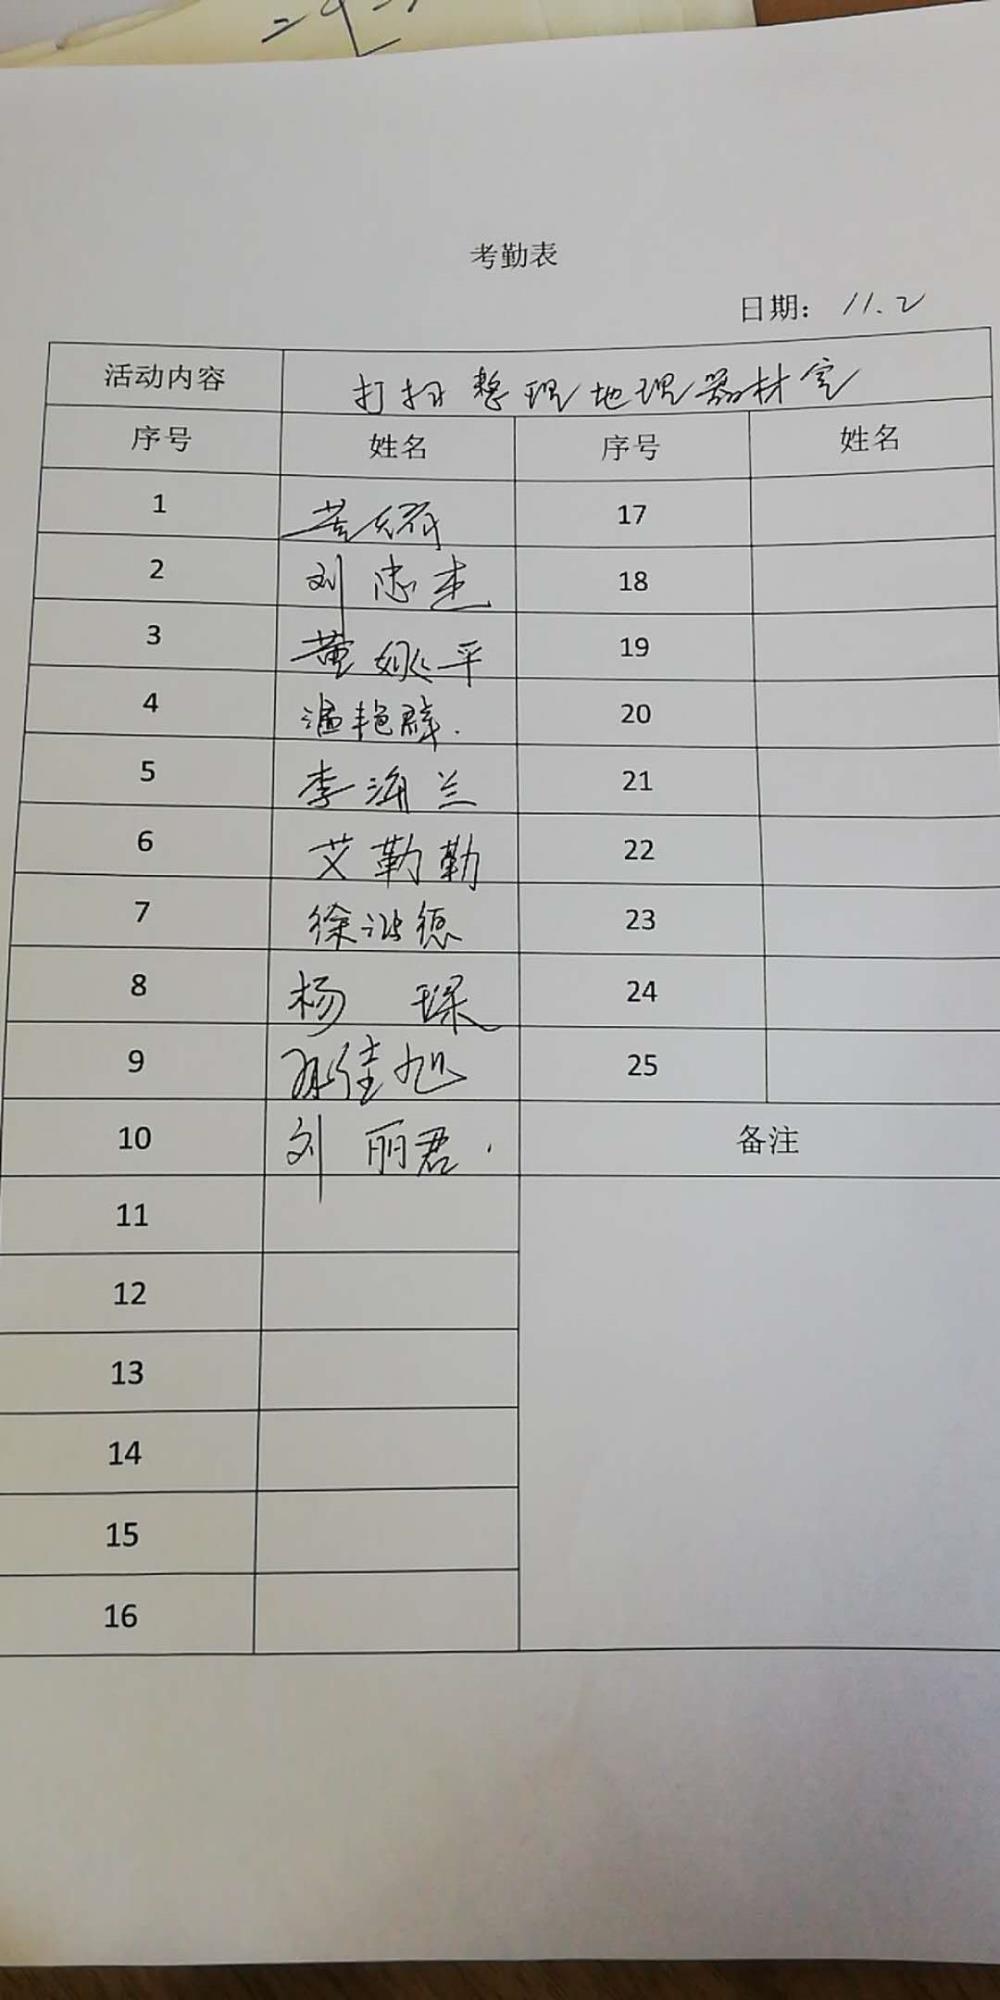 考勤表
日期: 11.2
活动内容 打扫整理地理器材室
序号 姓名 序号 姓名
1 17
2 刘忠杰 18
3 董姚平 19
4 温艳群. 20
5 李海兰 21
6 艾勒勤 22
7 徐 德 23
8 杨琛 24
9 孙佳旭 25
10 刘丽君. 备注
11
12
13
14
15
16